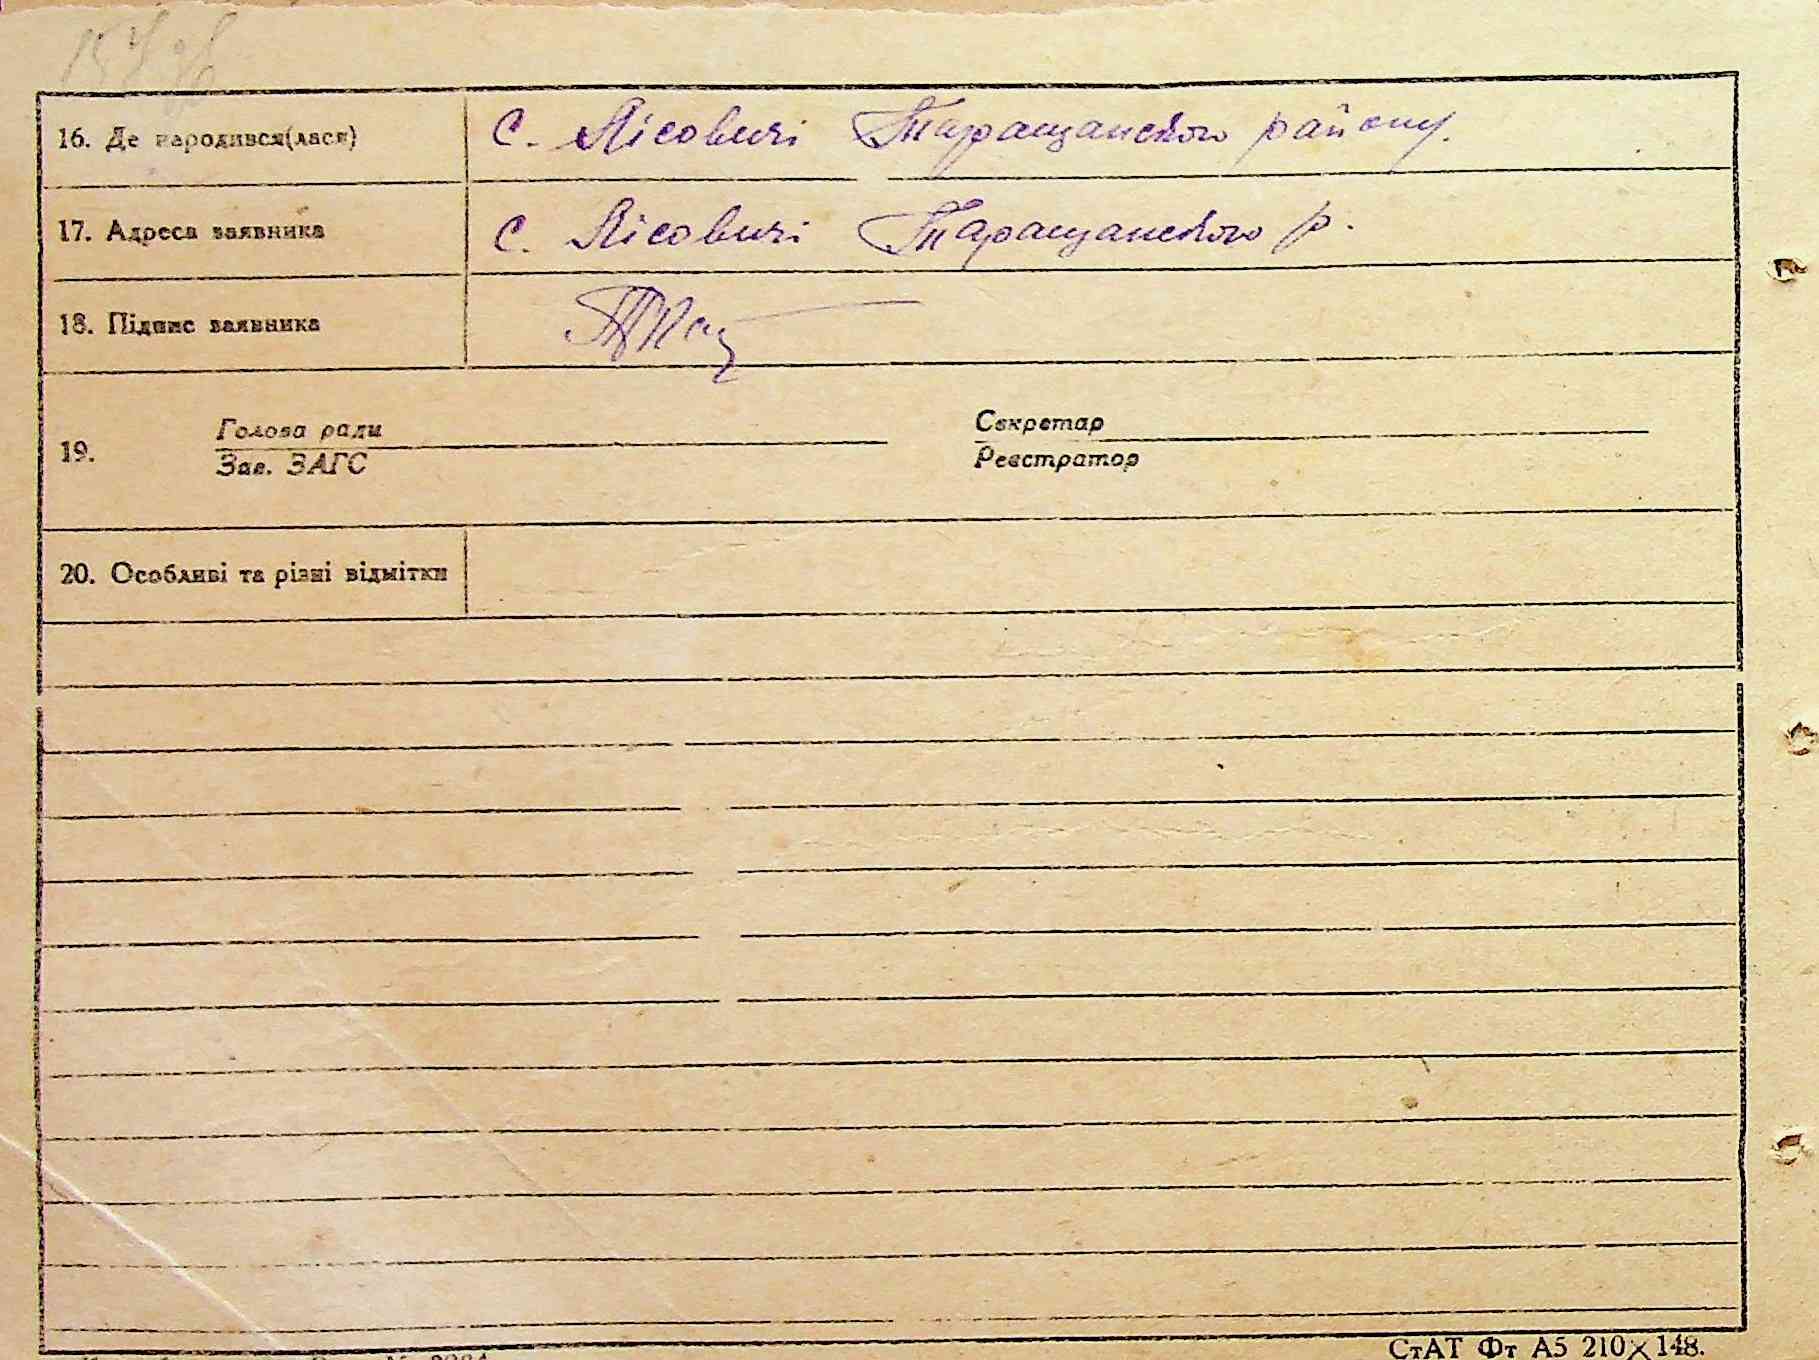 16. Де народився(лася) с. Лісовичі Таращанського району.
17. Адреса заявника с. Лісовичі Таращанського р.
18. Підпис заявника
Голова ради Секретар
19.
Зав. ЗАГС Реєстратор
20. Особливі та різні відмітки
СтАТ Фт А5 210×148.